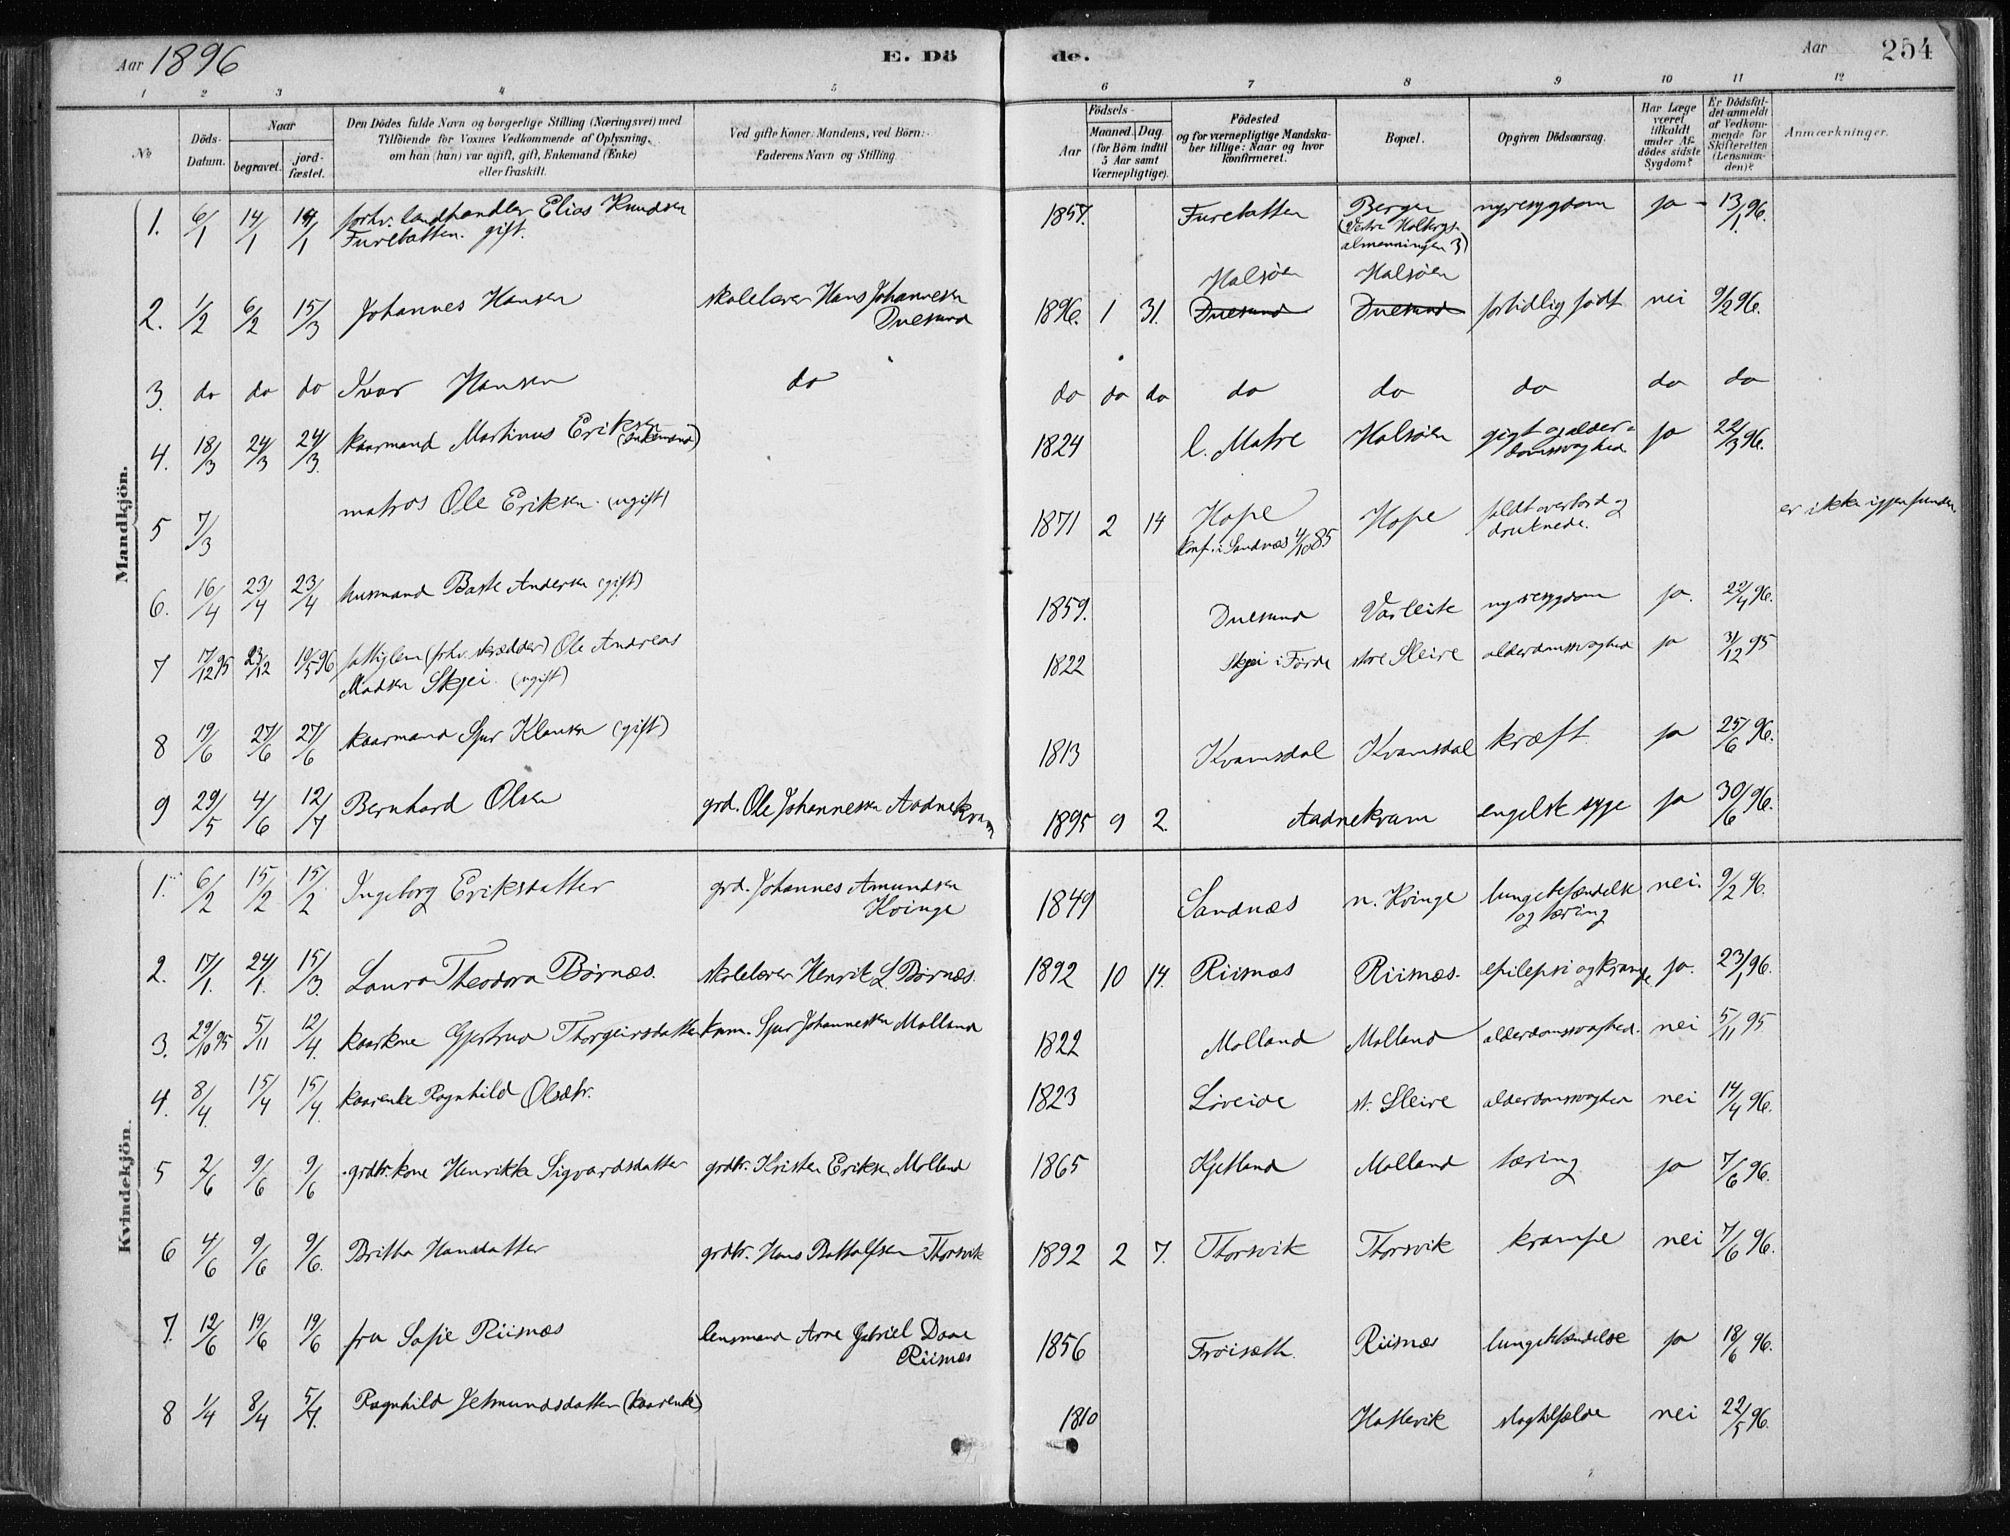 Aar 1896
E. Dö
de.
Aar
254
1 2 3 4 5 6 7 8 9 10 11 12
No
Döds-Datum.
Naar
begravet.
jord-fæstet.
Den Dödes fulde Navn og borgerlige Stilling (Næringsvei) med
Tilföiende for Voxnes Vedkommende af Oplysning,
om han (hun) var ugift, gift, Enkemand (Enke)
eller fraskilt.
Ved gifte Koner: Mandens, ved Börn:
Faderens Navn og Stilling
Födsels-
Aar
Maaned. Dag.
(for Börn indtil
5 Aar samt
Værnepligtige).
Födested
og for værnepligtige Mandska-
ber tillige: Naar og hvor
konfirmeret.
Bopæl.
Opgiven Dödsaarsag.
Har Læge
været
tilkaldt
under Af-
dödes sidste
Sygdom?
Er Dödsfal-
det anmeldt
af Vedkom-
mende for
Skifteretten
(Lensman-
den)?
Anmærkninger.
Mandkjön.
1. 6/1 14/1 14/1 forhv. landhandler Elias Knudsen 1857. Furebatten Bergen nyresygdom ja - 13/1 96.
Furebatten. gift. (Vestre Holbergs-
almenningen 3)
Halsøen Halsøen
2. 1/2 6/2 15/3 Johannes Hansen skolelærer Hans Johannesen 1896. 1 31. Duesund Duesund fortidlig født nei 9/2 96.
Duesund
3. do do do Ivar Hansen do do do do do do do do do
4. 18/3 24/3 24/3 kaarmand Martinus Eriksen (enkemand) 1824 l. Matre Halsøen gigt og alder- ja 22/3 96.
domssvaghed
5 7/3 matros Ole Eriksen (ugift) 1871 2 14 Hope Hope faldt overbord og er ikke igjenfunden
konf. i Sandnæs 4/10 85 druknede.
6. 16/4 23/4 23/4 husmand Baste Andersen (gift) 1859. Duesund Varleite nyresygdom ja. 22/4 96.
7 17/12 95 23/12 10/5 96 fattiglem (forhv. skrædder) Ole Andreas 1822 Skjei i Førde stre Sleire alderdomssvaghed ja 31/12 95
Madsen Skjei. (ugift)
8 19/6 27/6 27/6 kaarmand Sjur Klausen (gift) 1813 Kvamsdal Kvamsdal kræft ja 25/6 96.
9 29/5 4/6 12/7 Bernhard Olsen grd. Ole Johannessen Aadnekvam 1895 9 2. Aadnekvam engelsk syge ja 30/6 96.
Kvindekjön.
1. 6/2 15/2 15/2 Ingeborg Eriksdatter grd. Johannes Amundsen 1849 Sandnæs n. Kvinge lungebetændelse nei. 9/2 96.
Kvinge og tæring
2. 17/1. 24/1. 15/3. Laura Theodora Børnæs. skolelærer Henrik L. Børnæs. 1892 10 14. Riisnæs Riisnæs. epilepsi og krampe ja. 23/1 96.
3. 29/10 95 5/11 12/4. kaarkone Gjertrud Thorgeirsdatter kaarm. Sjur Johannessen Molland 1822 Molland Molland alderdomssvaghed. nei 5/11 95
4. 8/4. 15/4 15/4. kaarenke Ragnhild Olsdtr. 1823 Løveide st. Sleire alderdomssvaghed nei 14/4 96.
5 2/6 9/6 9/6 grdbr. kone Henrikke Sigvardsdatter grdbr. Kristen Eriksen Molland 1865 Kjetland Molland tæring ja 7/6 96.
6 4/6 9/6 9/6. Britha Hansdatter grdbr. Hans Battalfsen Thorsvik 1892 2 7. Thorsvik Thorsvik krampe nei 7/6 96.
7. 12/6 19/6 19/6 fru Sofie Riisnæs lensmand Arne Gabriel Daae 1856 Frøiseth. Riisnæs lungebetændelse ja 18/6 96.
Riisnæs
8 1/4 8/4 5/7. Ragnhild Jetmundsdatter (kaarenke) 1810 Hattevik slagtilfælde nei 22/5 96.